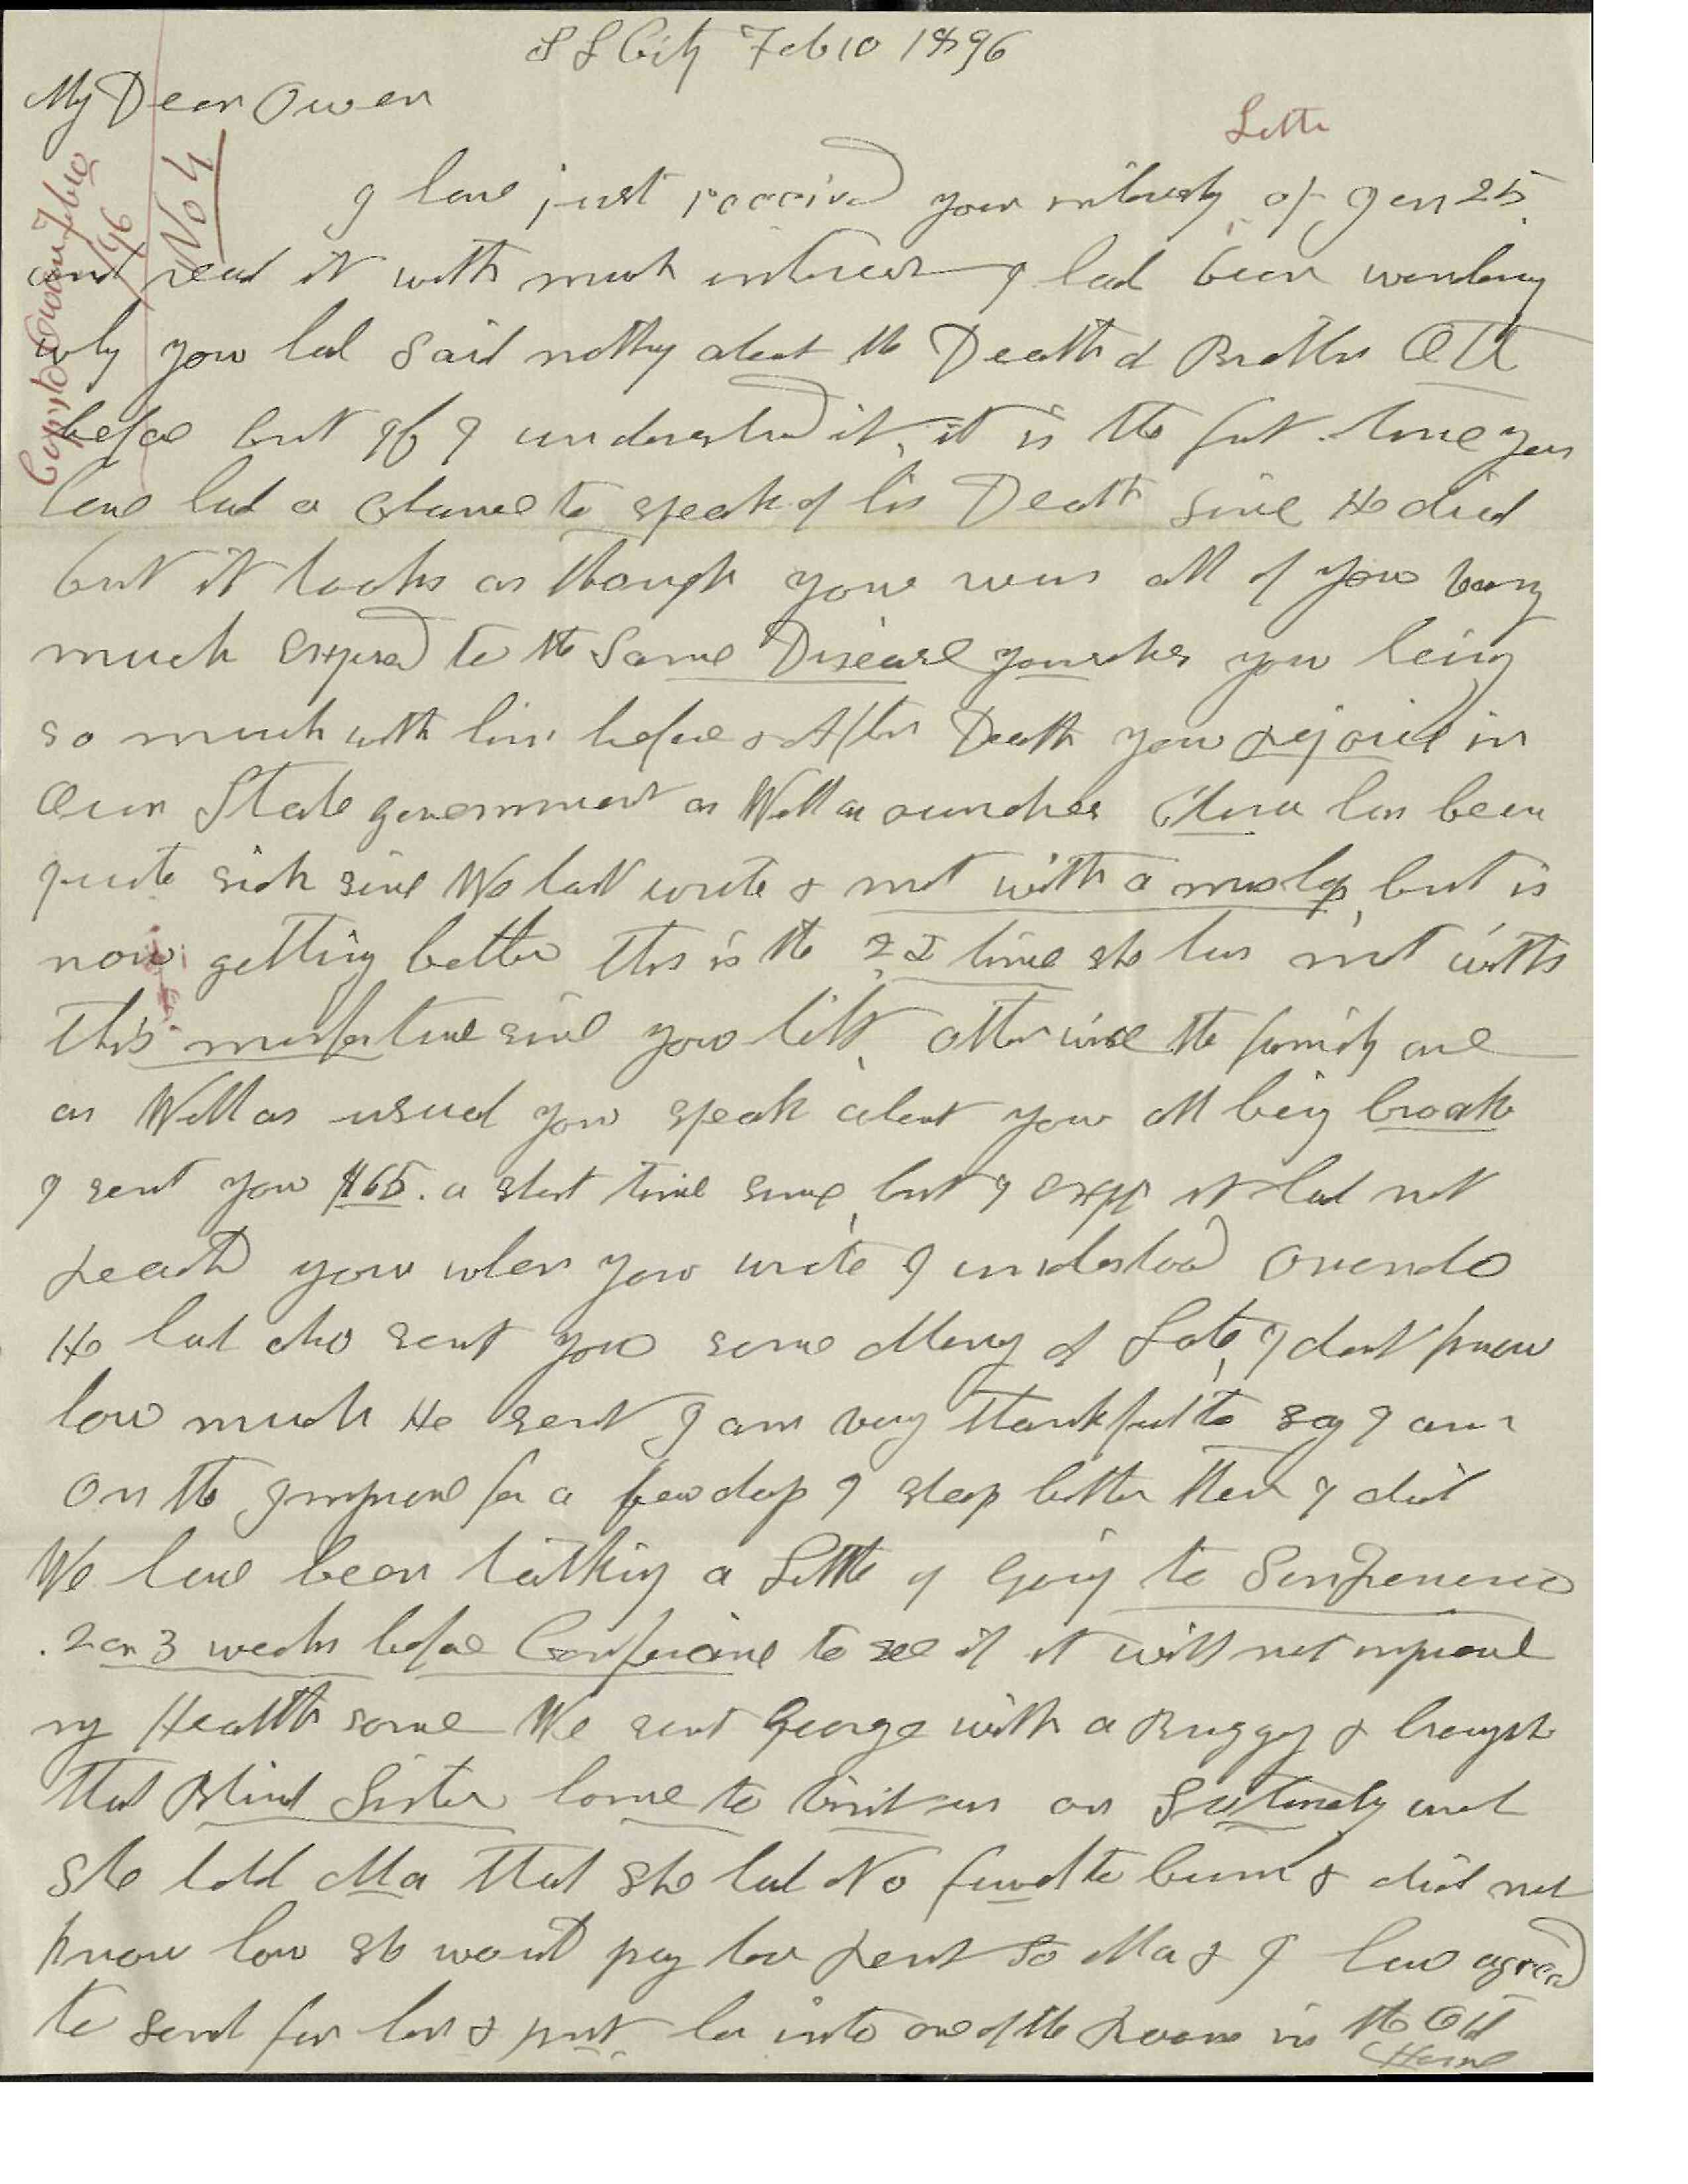 S L City Feb 10 1896
My Dear Owen
Letter
Copy to Owen Feb 10
/96
No 4
I have just received your interesting, of Jan 25.
and read it with much interest I had been wondering
why you had said nothing about the Death of Brother Ott
before but if I understand it, it is the first time you
have had a chance to speak of his Death since He died
but it looks as though you were all of you very
much exposed to the Same Disease yourselves you being
so much with him before & After Death you rejoice in
Our State government as Well as ourselves Clara has been
quite sick since We last wrote & met with a mishap, but is
now getting better this is the 2d time she has met with
this misfortune since you left, otherwise the family are
as Well as usual you speak about you all being broak
I sent you $65. a short time since, but I expt it had not
reachd you when you wrote I understood Ovando
He had also sent you some Money of Late, I dont know
how much He sent I am very thankful to say I am
on the Improve for a few days I sleep better then I did
We have been talking a Little of going to SanFrancisco
. 2 or 3 weeks before Conference to see if it will not improve
my Health some We sent George with a Buggy & brought
that Blind Sister home to visit us on Saturday and
She told Ma that She had No fuel to burn & did not
know how she would pay her rent so Ma & I have agreed
to send for her & put her into one of the Rooms in the Old
Home